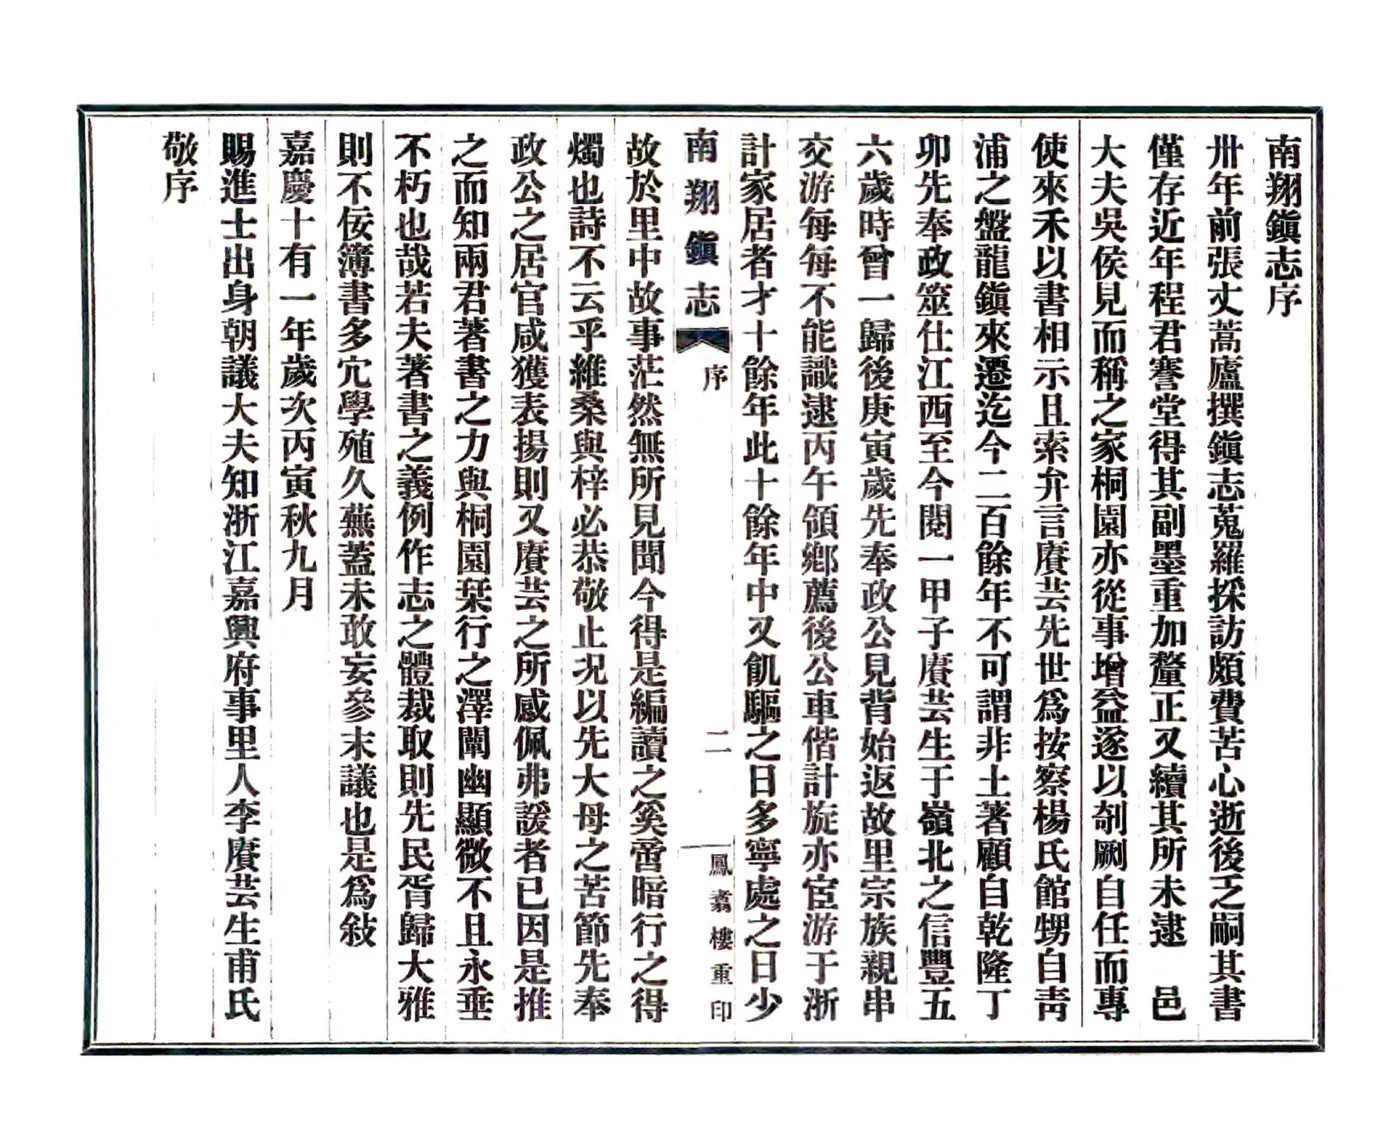 南翔鎭志序
卅年前張丈蒿廬撰鎭志蒐羅採訪頗費苦心逝後乏嗣其書
僅存近年程君謇堂得其副墨重加釐正又續其所未逮　邑
大夫吳侯見而稱之家桐園亦從事增益遂以剞劂自任而專
使來禾以書相示且索弁言賡芸先世爲按察楊氏館甥自靑
浦之盤龍鎭來遷迄今二百餘年不可謂非土著顧自乾隆丁
卯先奉政筮仕江西至今閱一甲子賡芸生于嶺北之信豐五
六歲時曾一歸後庚寅歲先奉政公見背始返故里宗族親串
交游每每不能識逮丙午領鄕薦後公車偕計旋亦宦游于浙
計家居者才十餘年此十餘年中又飢驅之日多寧處之日少
南翔鎭志
序
二
鳳翥樓重印
故於里中故事茫然無所見聞今得是編讀之奚啻暗行之得
燭也詩不云乎維桑與梓必恭敬止况以先大母之苦節先奉
政公之居官咸獲表揚則又賡芸之所感佩弗諼者已因是推
之而知兩君著書之力與桐園栞行之澤闡幽顯微不且永垂
不朽也哉若夫著書之義例作志之體裁取則先民胥歸大雅
則不佞簿書多宂學殖久蕪蓋未敢妄參末議也是爲敍
嘉慶十有一年歲次丙寅秋九月
賜進士出身朝議大夫知浙江嘉興府事里人李賡芸生甫氏
敬序